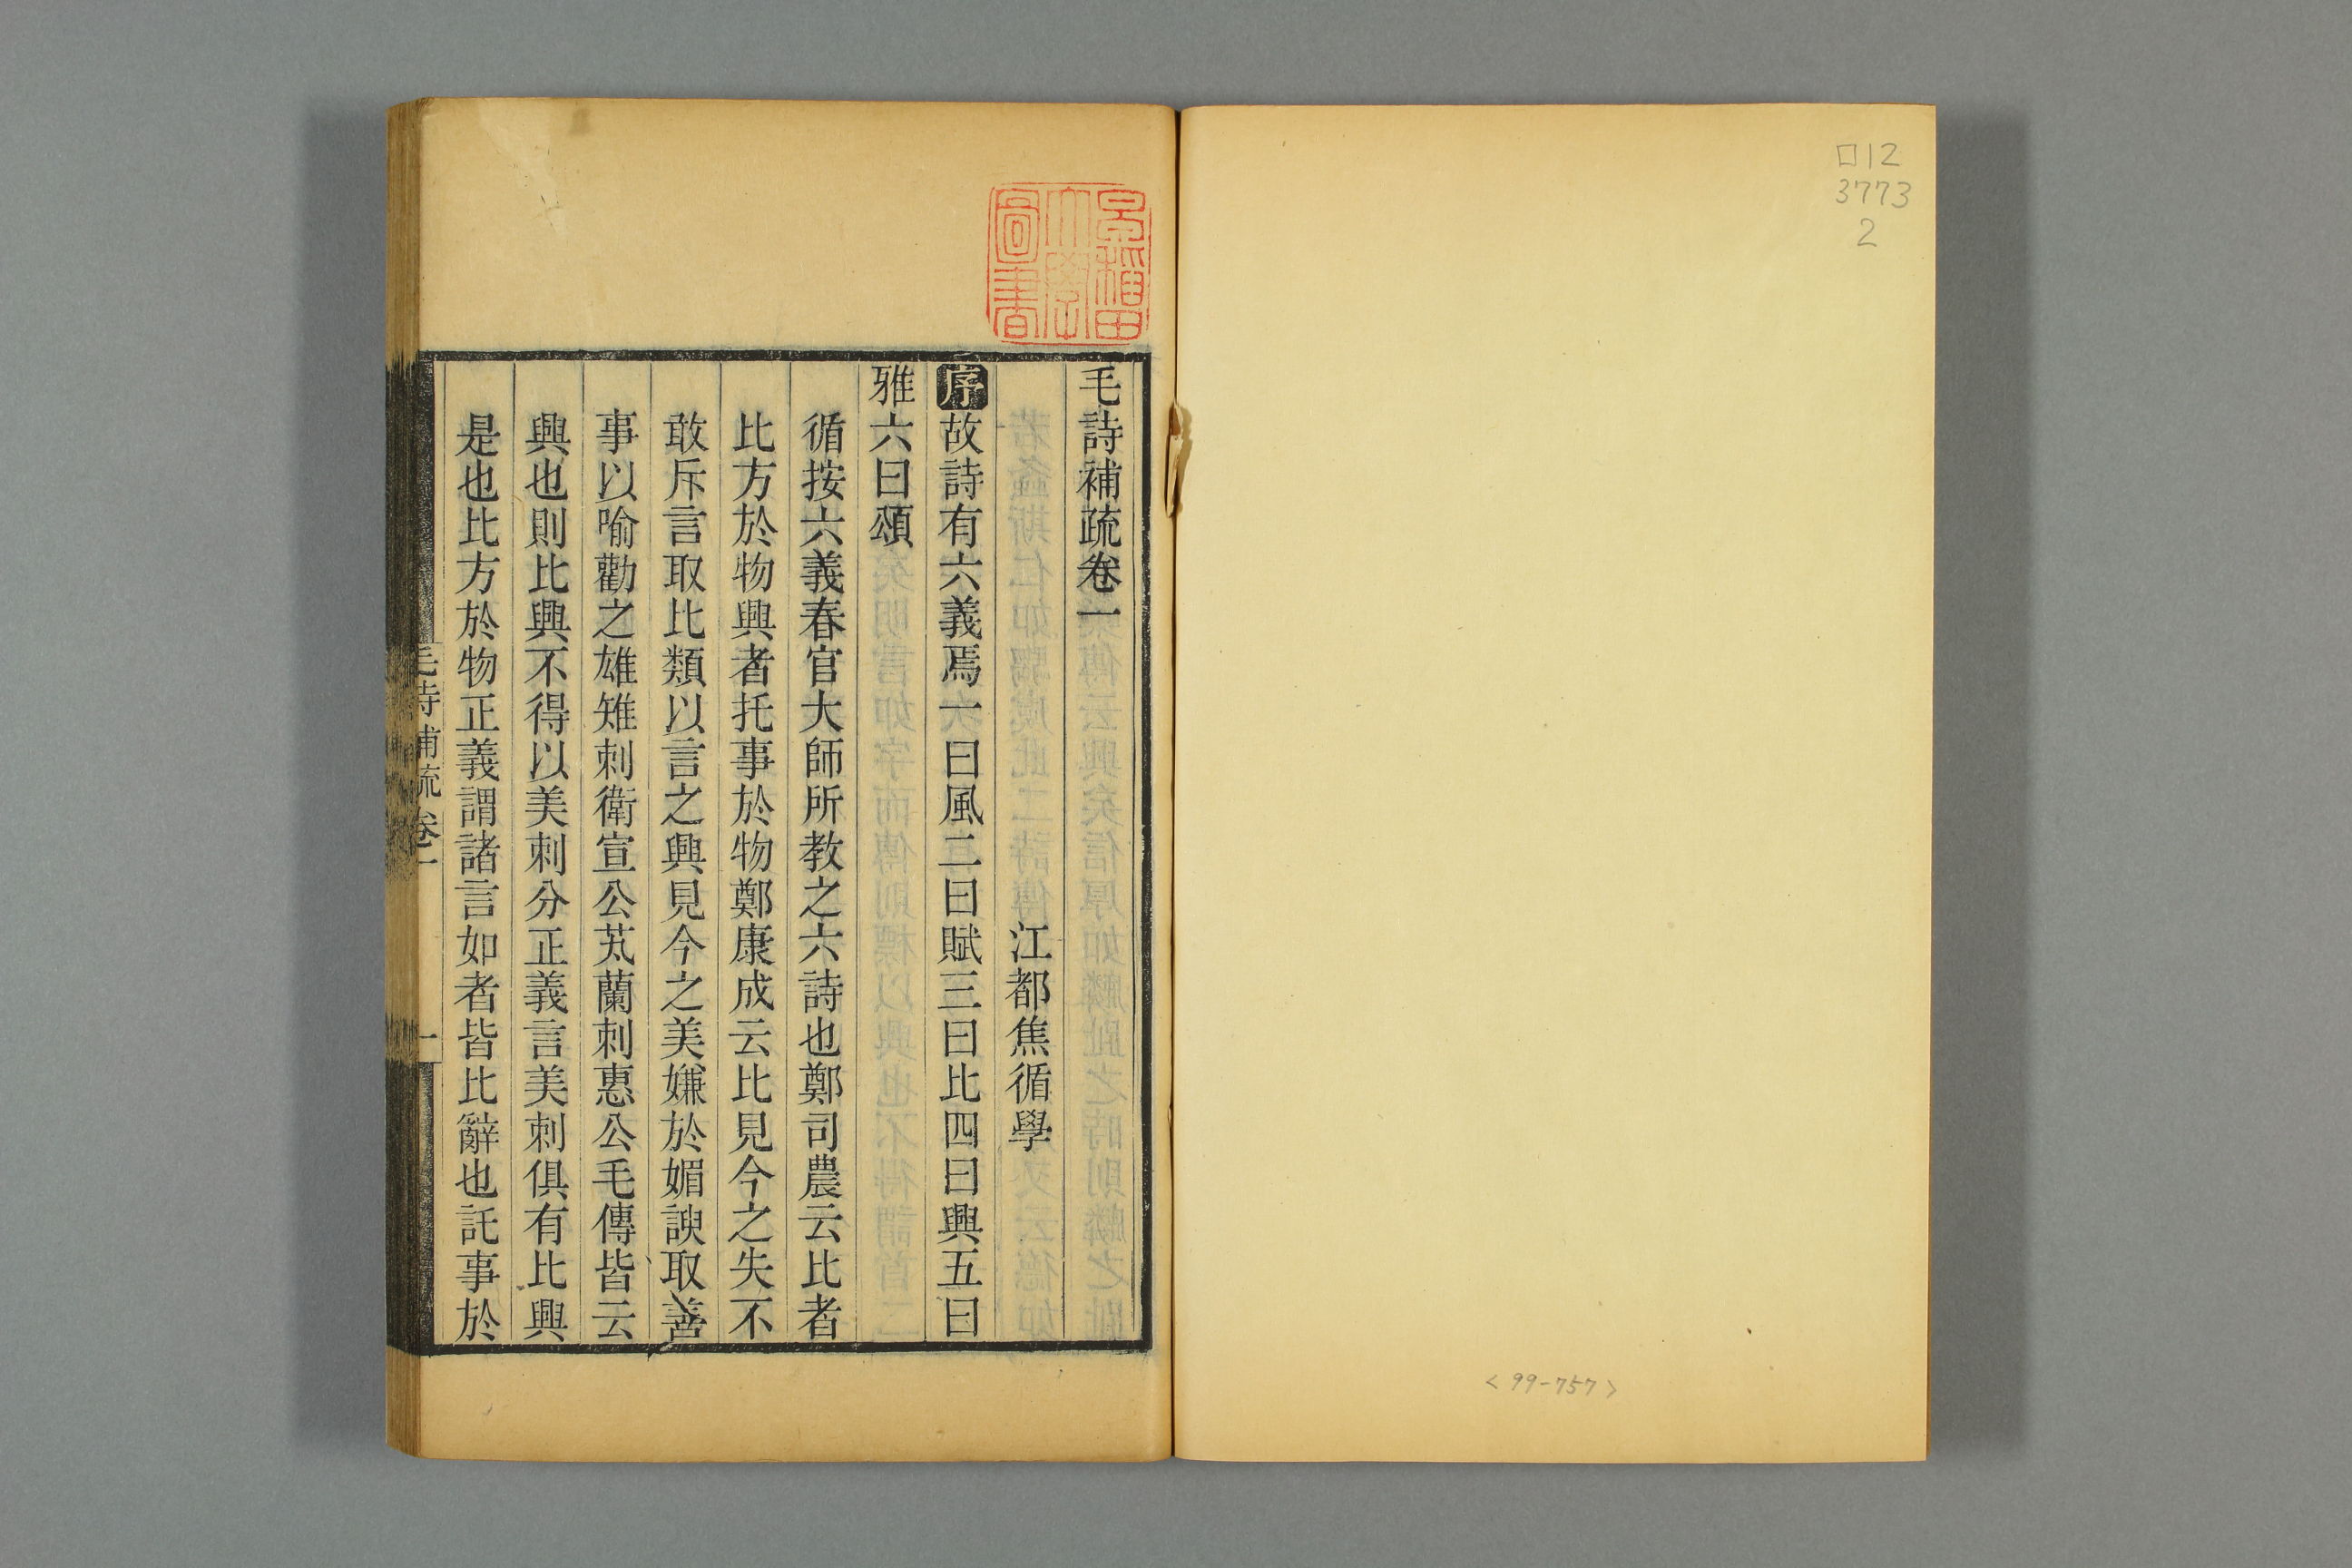 口12
3773
2
<99-757>
早稲田
大學
圖書
毛詩補疏卷一
江都焦循學
序故詩有六義焉一曰風二曰賦三曰比四曰興五曰
雅六曰頌
循按六義春官大師所教之六詩也鄭司農云比者
比方於物興者托事於物鄭康成云比見今之失不
敢斥言取比類以言之興見今之美嫌於媚諛取善
事以喻勸之雄雉刺衛宣公芄蘭刺惠公毛傳皆云
興也則比興不得以美刺分正義言美刺俱有比興
是也比方於物正義謂諸言如者皆比辭也託事於
毛詩補疏卷一
一